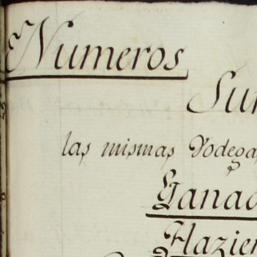 Numeros
Sur
las mismas Vodega
Ganad
Hazien